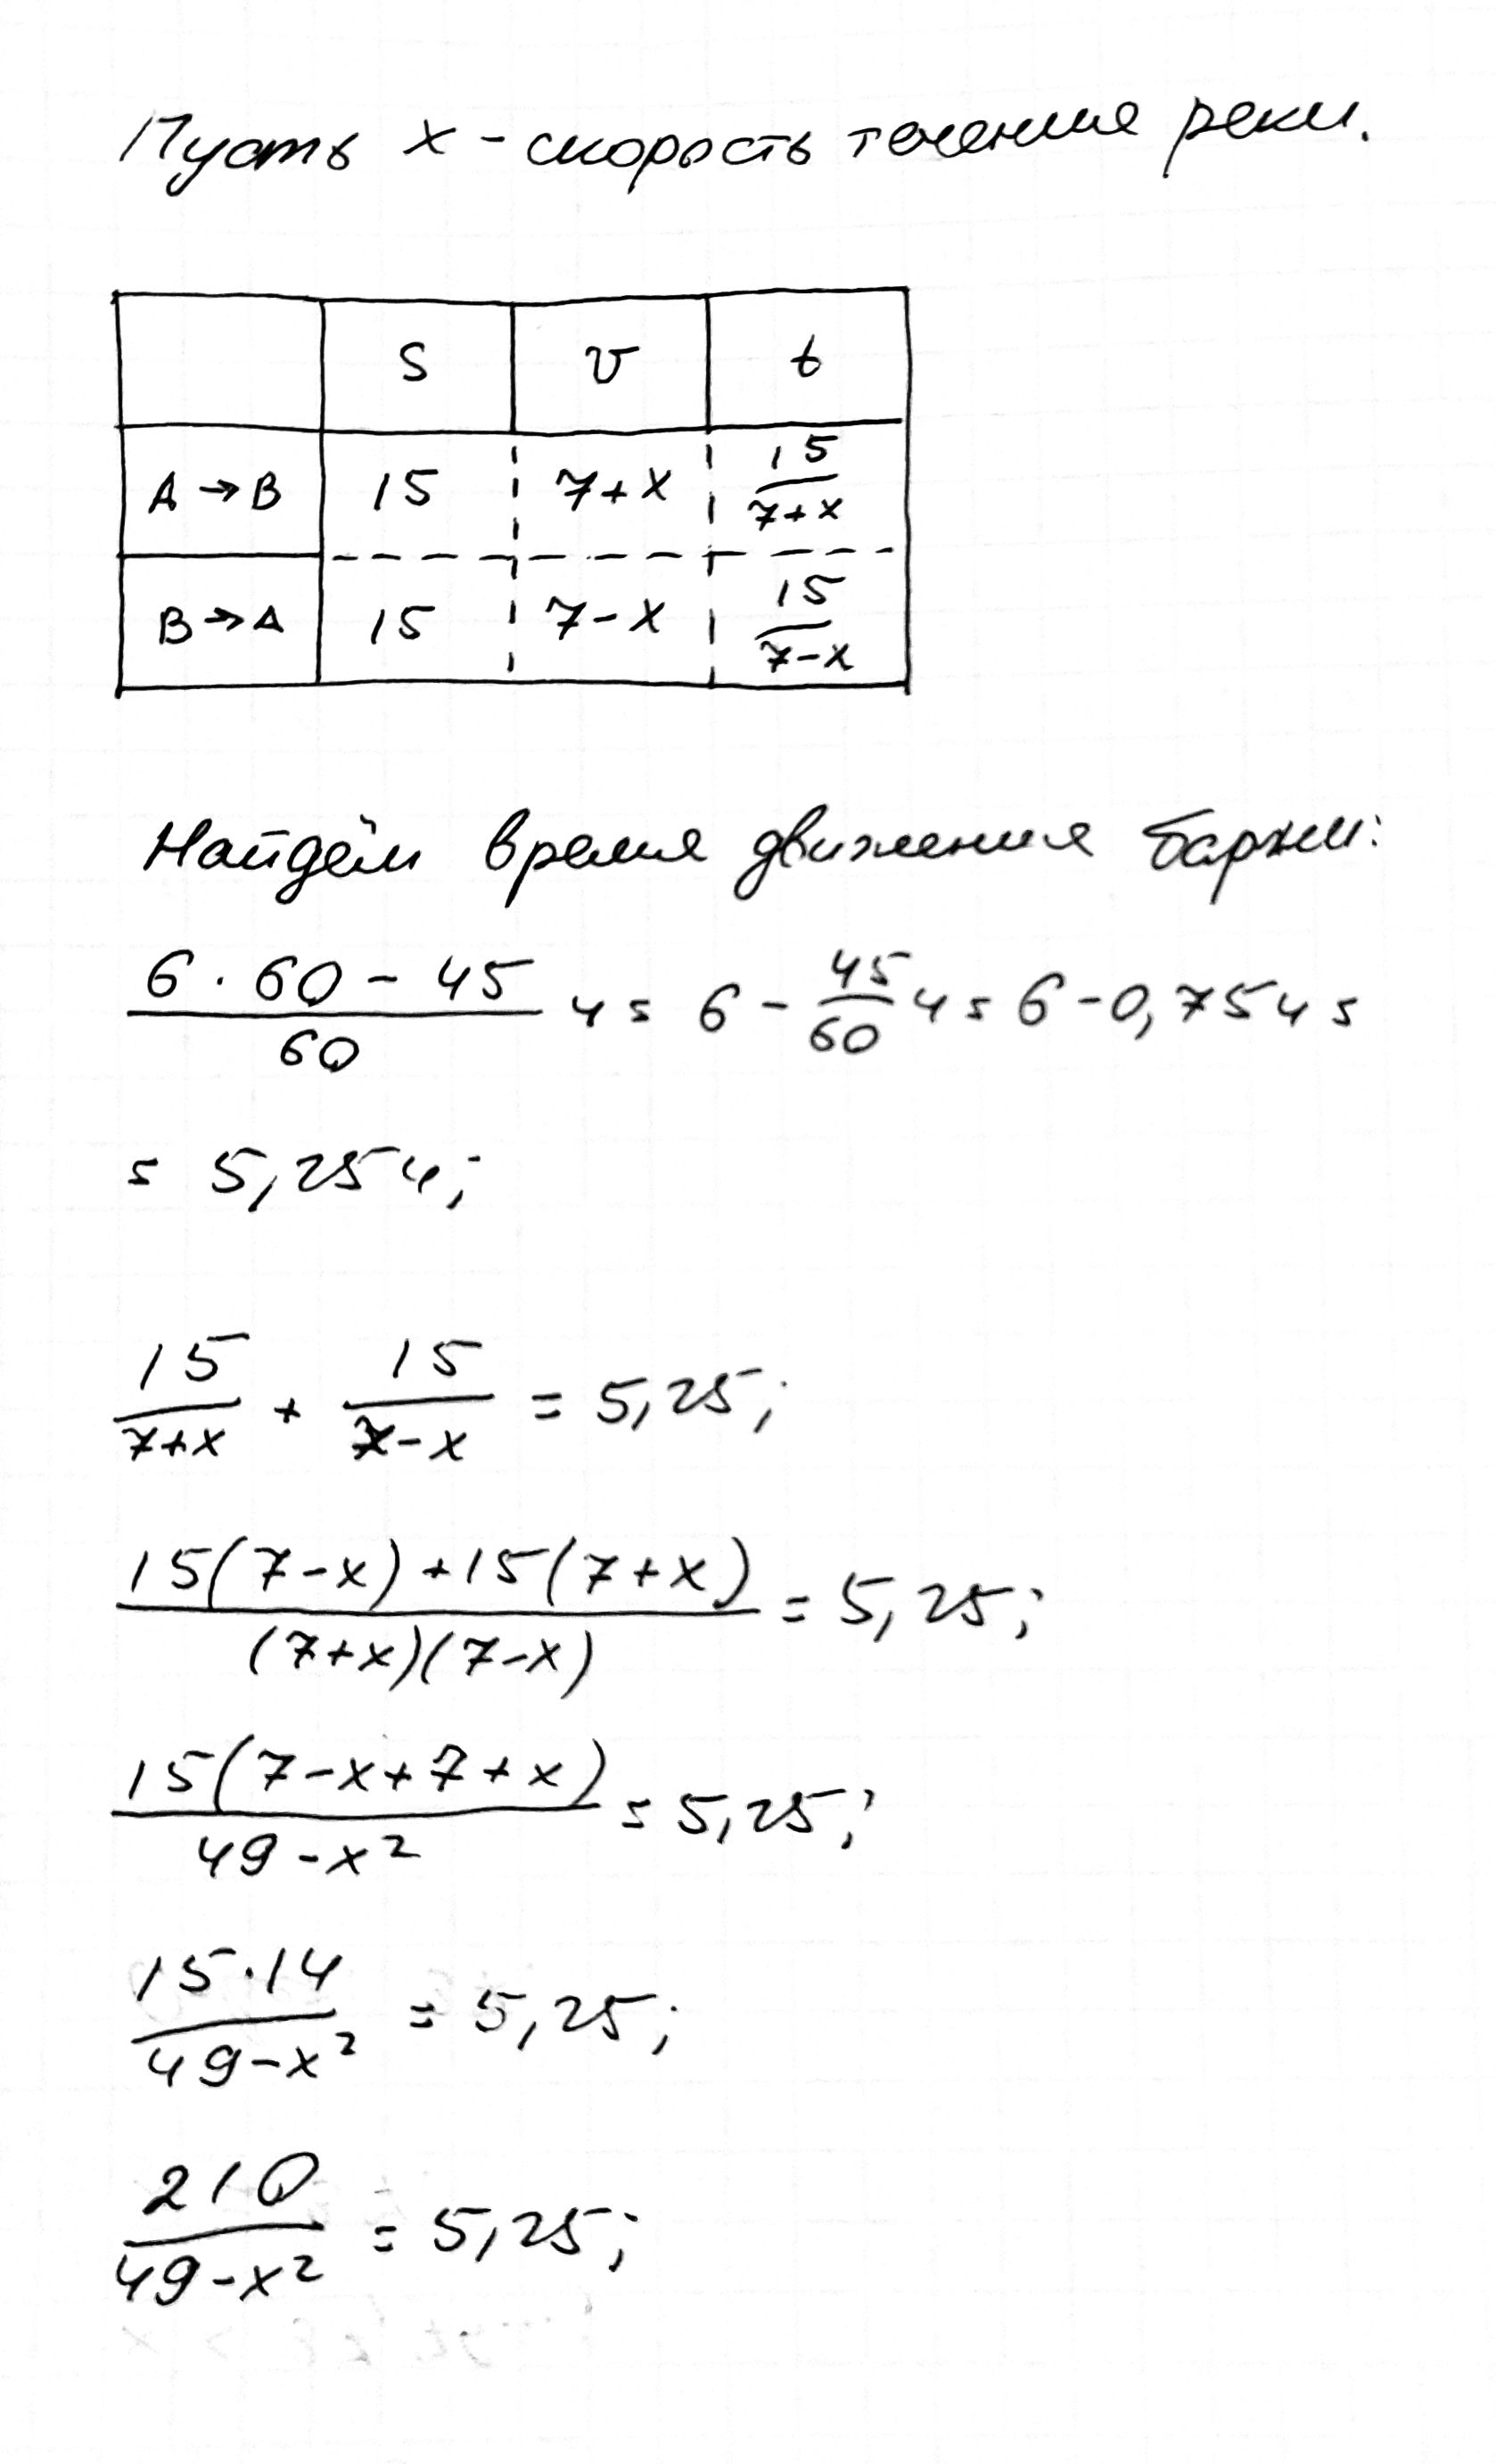 Пусть x - скорость течения реки.
S v t
A → B 15 7+x 15/(7+x)
B → A 15 7-x 15/(7-x)
Найдём время движения баржи:
(6 · 60 - 45)/60 ч = 6 - 45/60 ч = 6 - 0,75 ч =
= 5,25 ч;
15/(7+x) + 15/(7-x) = 5,25;
(15(7-x)+15(7+x))/((7+x)(7-x)) = 5,25;
(15(7-x+7+x))/(49-x²) = 5,25;
(15·14)/(49-x²) = 5,25;
210/(49-x²) = 5,25;